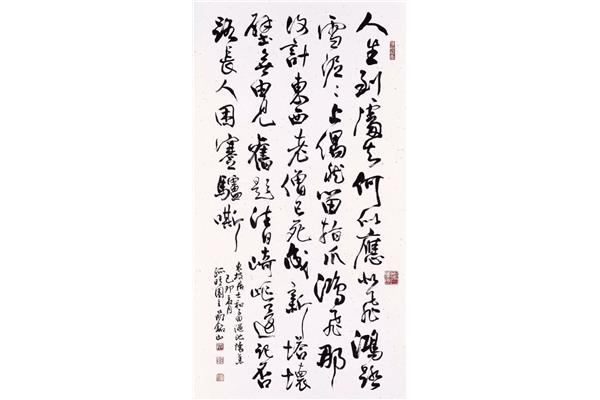 人生到處知何似應似飛鴻踏
雪泥〻上偶然留指爪鴻飛那
復計東西老僧已死成新塔壞
壁無由見舊題往日崎嶇還記否
路長人困蹇驢嘶
東坡居士和子由澠池懷舊
己卯月
山